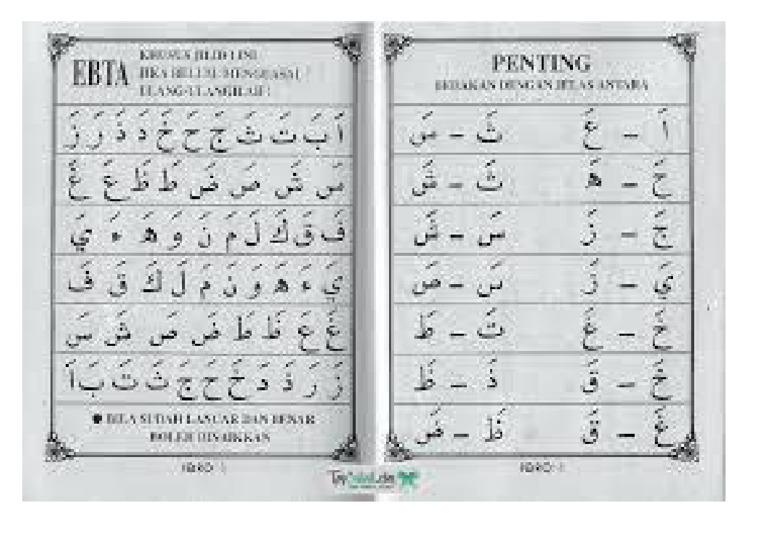 EBTA
KHUSUS JILID I INI
JIKA BELUM MENGUASAI
ULANG-ULANGILAH!
اَ بَ تَ ثَ جَ حَ خَ دَ ذَ رَ زَ
سَ شَ صَ ضَ طَ ظَ عَ غَ
فَ قَ كَ لَ مَ نَ وَ هَ ءَ يَ
يَ ءَ هَ وَ نَ مَ لَ كَ قَ فَ
غَ عَ ظَ طَ ضَ صَ شَ سَ
زَ رَ ذَ دَ خَ حَ جَ ثَ تَ بَ اَ
● BILA SUDAH LANCAR DAN BENAR
BOLEH DINAIKKAN
IQRO' 1
PENTING
BEDAKAN DENGAN JELAS ANTARA
اَ – عَ ثَ – سَ
حَ – هَ ثَ – شَ
جَ – زَ سَ – شَ
يَ – زَ سَ – صَ
خَ – غَ تَ – طَ
خَ – قَ ذَ – ظَ
غَ – قَ ظَ – ضَ
IQRO' 1